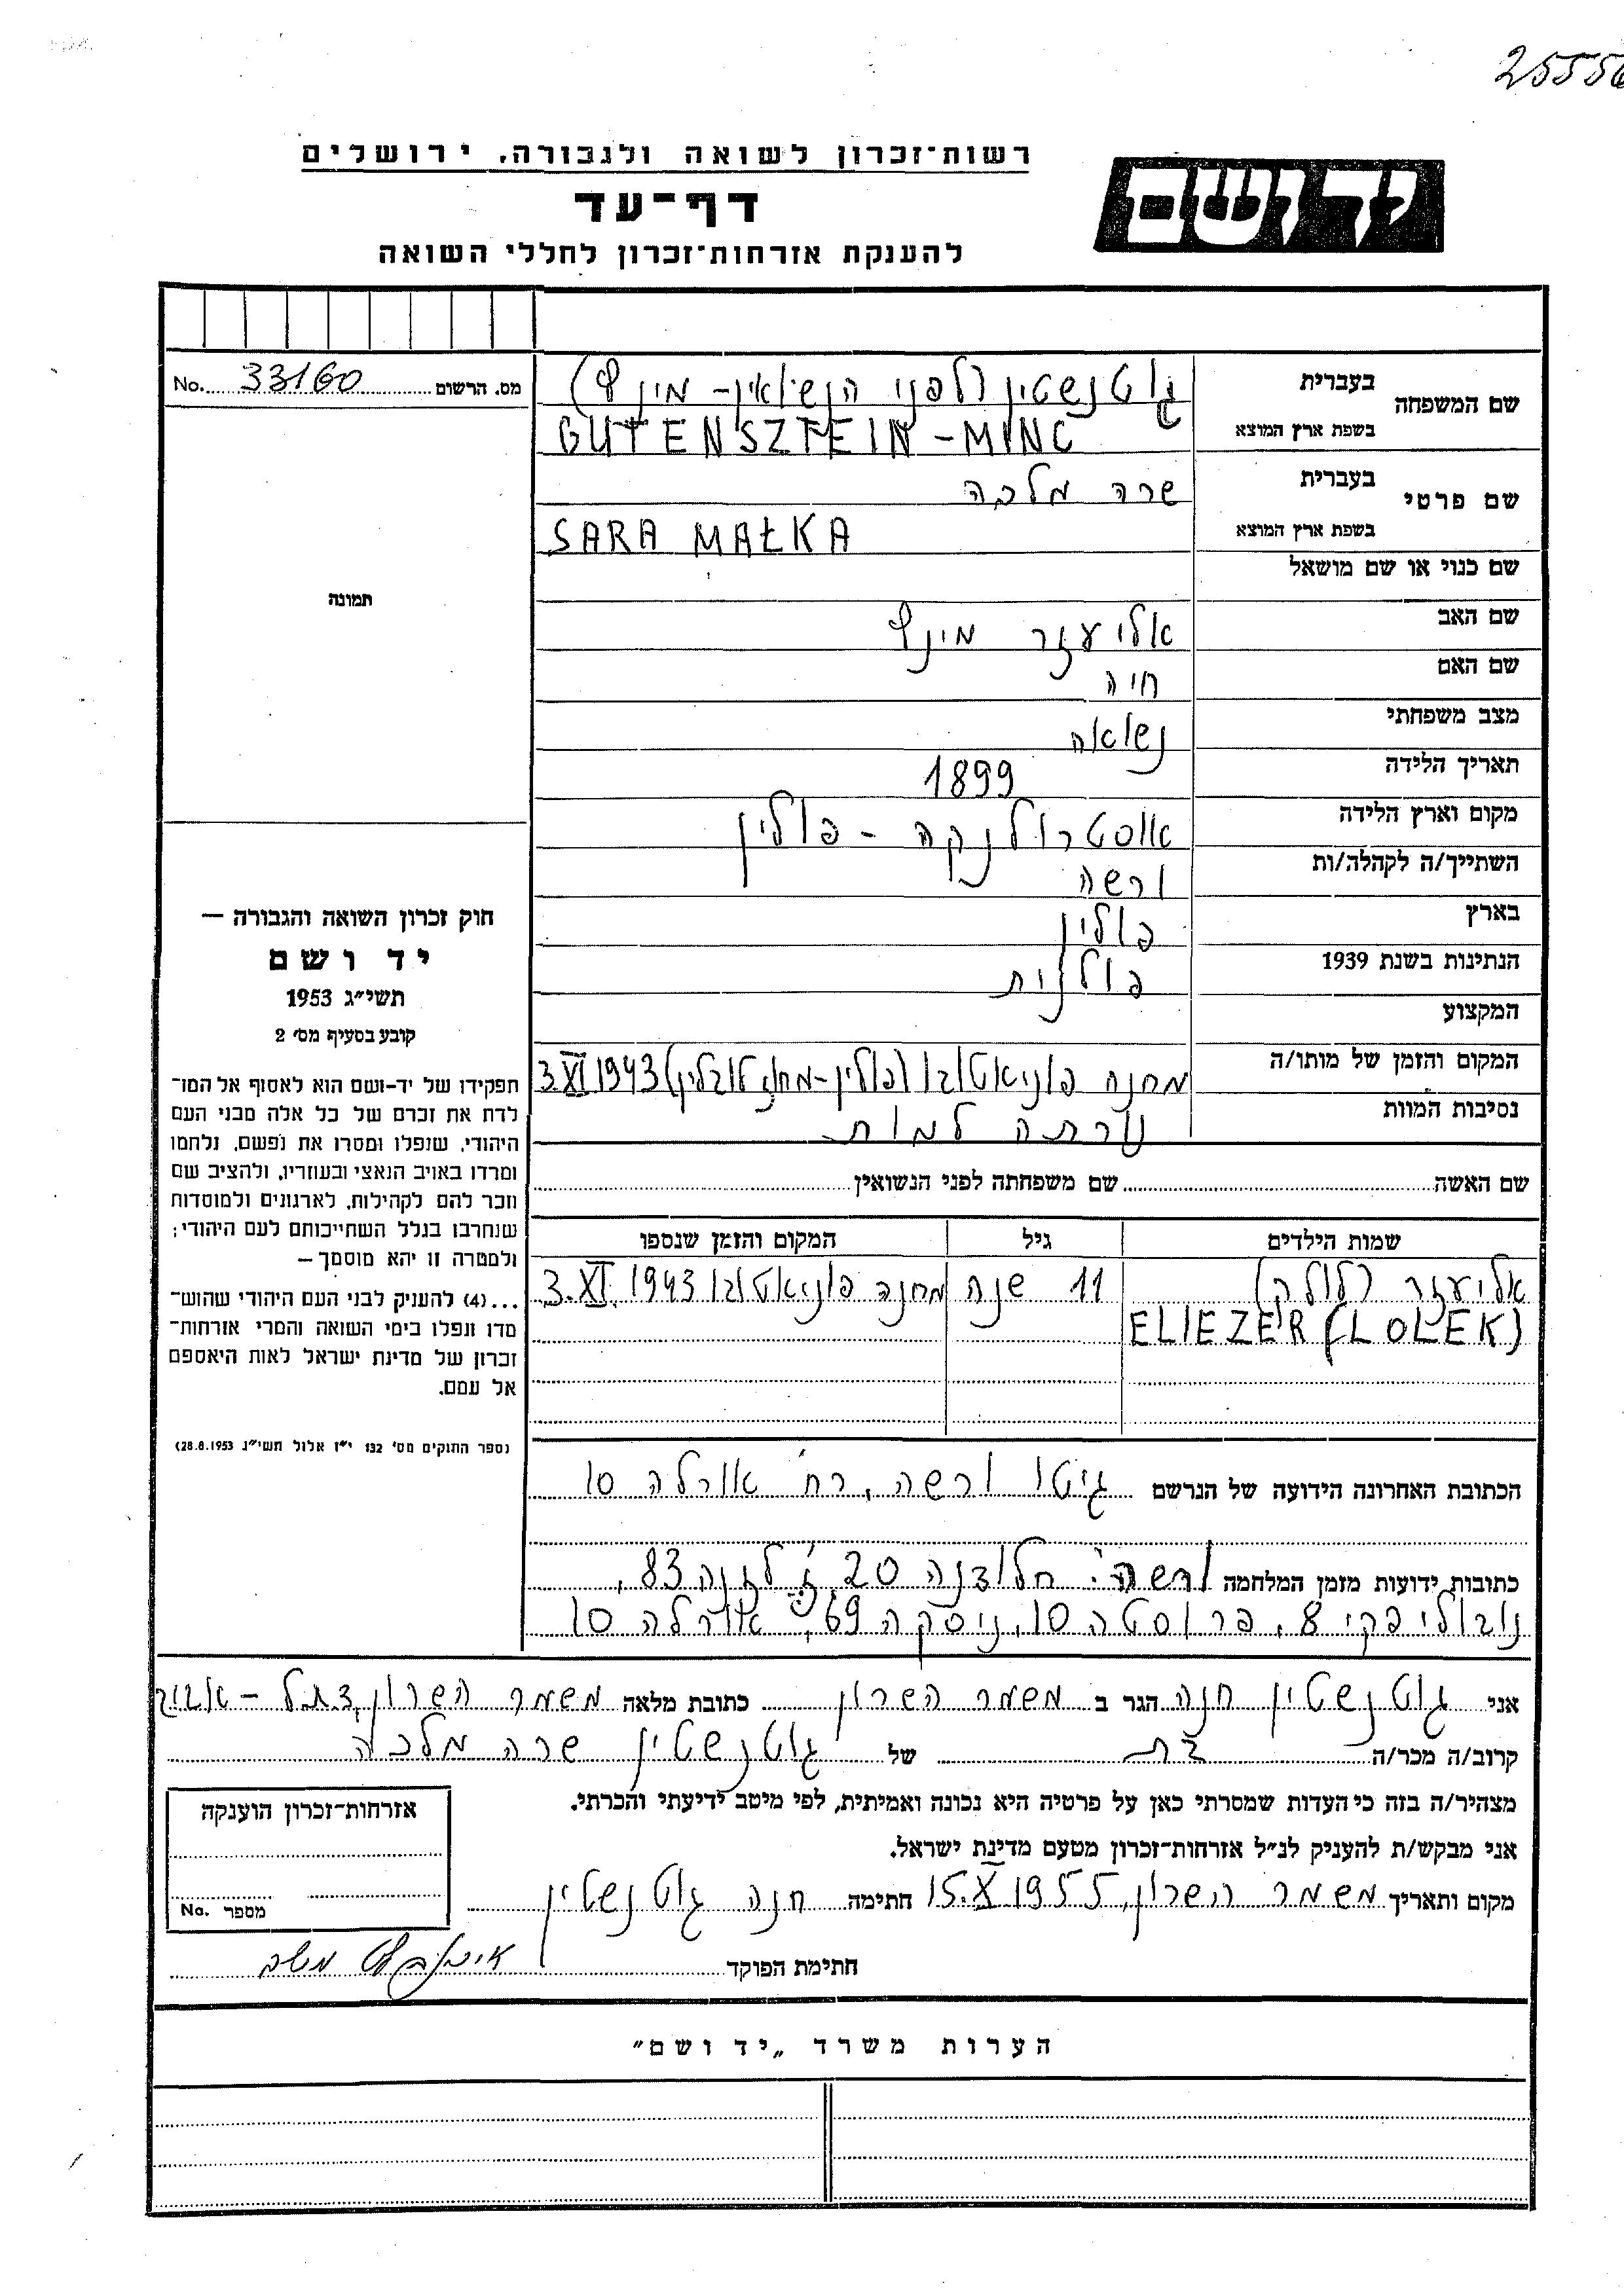 25556
רשות־זכרון לשואה ולגבורה, ירושלים
ידושם
דף־עד
להענקת אזרחות־זכרון לחללי השואה
מס. הרשום 33160 No.
שם המשפחה בעברית גוטנשטין (לפני הנשואין - מינץ)
בשפת ארץ המוצא GUTENSZTEIN - MINC
שם פרטי בעברית שרה מלכה
בשפת ארץ המוצא SARA MAŁKA
שם כנוי או שם מושאל
תמונה
שם האב אליעזר מינץ
שם האם חיה
מצב משפחתי נשואה
תאריך הלידה 1899
מקום וארץ הלידה אוסטרולנקה - פולין
השתייך/ה לקהלה/ות ורשה
בארץ פולין
הנתינות בשנת 1939 פולנית
המקצוע
המקום והזמן של מותו/ה מחנה פוניאטובו (פולין - מחוז לובלין) 3.XI 1943
נסיבות המוות נורתה למות
שם האשה שם משפחתה לפני הנשואין
שמות הילדים גיל המקום והזמן שנספו
אליעזר (לולק) 11 שנה מחנה פוניאטובו 3.XI.1943
ELIEZER (LOLEK)
חוק זכרון השואה והגבורה —
יד ושם
תשי״ג 1953
קובע בסעיף מס׳ 2
תפקידו של יד־ושם הוא לאסוף אל המו־
לדת את זכרם של כל אלה מבני העם
היהודי, שנפלו ומסרו את נפשם, נלחמו
ומרדו באויב הנאצי ובעוזריו, ולהציב שם
וזכר להם לקהילות, לארגונים ולמוסדות
שנחרבו בגלל השתייכותם לעם היהודי;
ולמטרה זו יהא מוסמך —
...(4) להעניק לבני העם היהודי שהוש־
מדו ונפלו בימי השואה והמרי אזרחות־
זכרון של מדינת ישראל לאות היאספם
אל עמם.
(ספר החוקים מס׳ 132 י״ז אלול תשי״ג 28.8.1953)
הכתובת האחרונה הידועה של הנרשם גיטו ורשה, רח׳ אורלה 10
כתובות ידועות מזמן המלחמה ורשה: חלודנה 20, ז׳לזנה 83,
נובוליפקי 8, פרוסטה 10, ניסקה 69, אורלה 10
אני גוטנשטין חנה הגר ב משמר השרון כתובת מלאה משמר השרון, ד.נ. תל-אביב
קרוב/ה מכר/ה בת של גוטנשטין שרה מלכה
מצהיר/ה בזה כי העדות שמסרתי כאן על פרטיה היא נכונה ואמיתית, לפי מיטב ידיעתי והכרתי.
אני מבקש/ת להעניק לנ״ל אזרחות־זכרון מטעם מדינת ישראל.
מקום ותאריך משמר השרון, 15.X 1955 חתימה חנה גוטנשטין
חתימת הפוקד
אזרחות־זכרון הוענקה
מספר No.
הערות משרד „יד ושם״